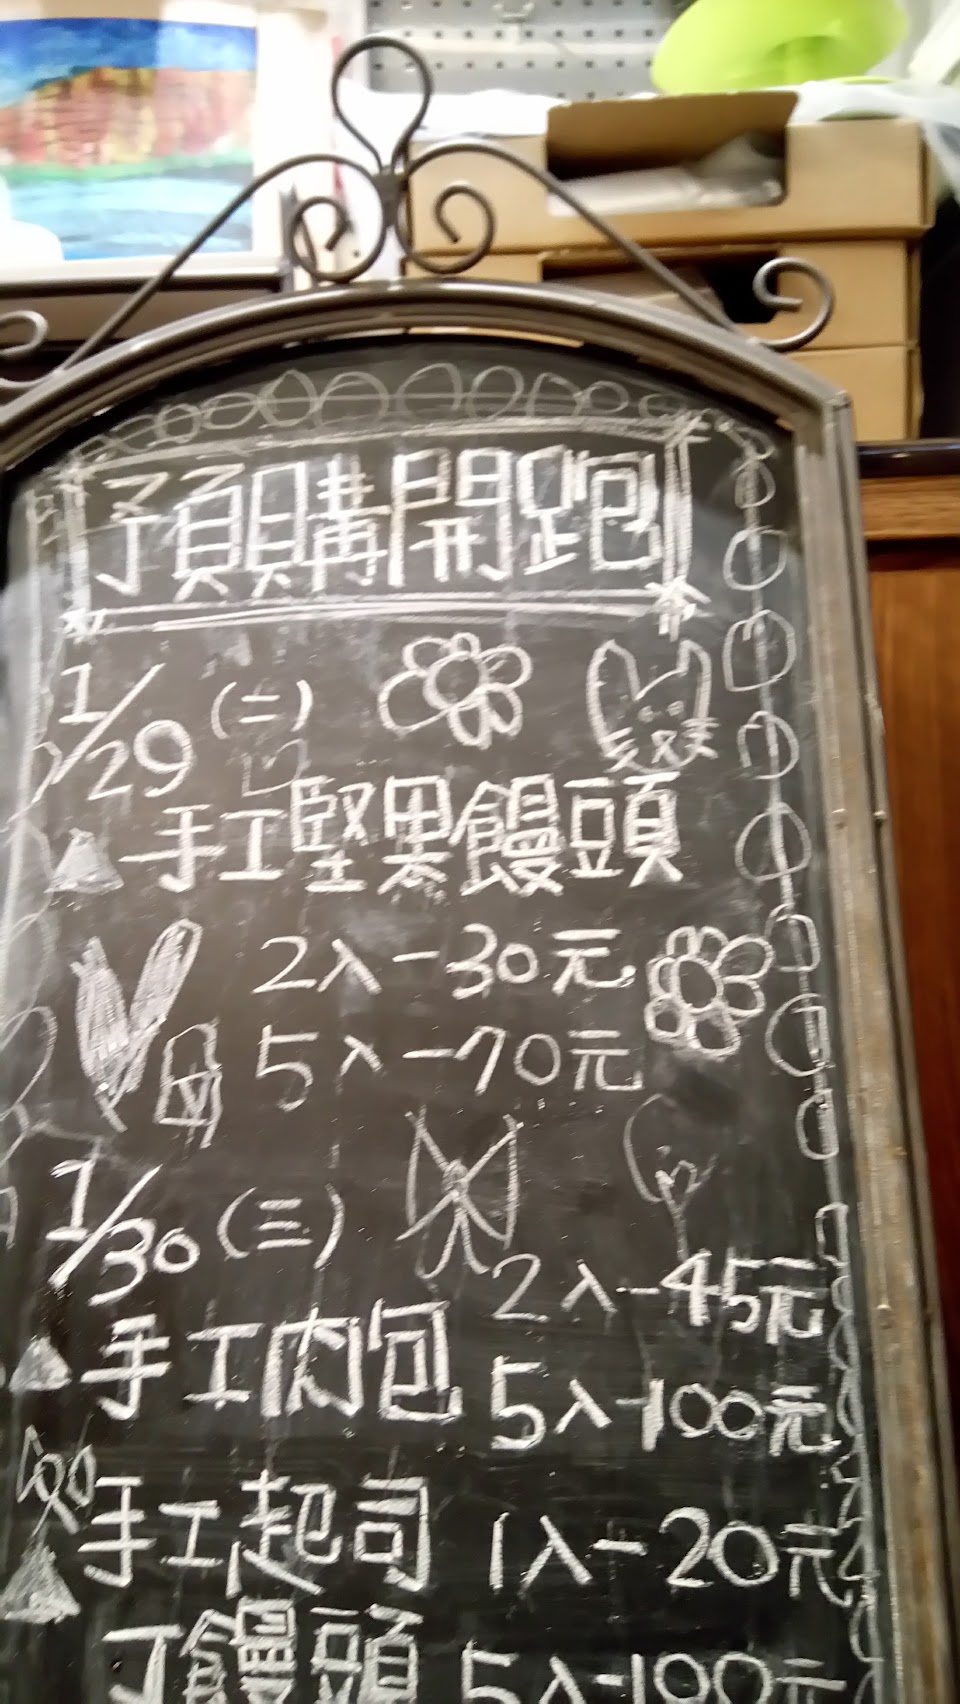 預購開跑
1/29(二)
手工堅果饅頭
2入-30元
5入-70元
1/30(三)
手工肉包
2入-45元
5入-100元
手工起司
1入-20元
丁饅頭
5入-100元